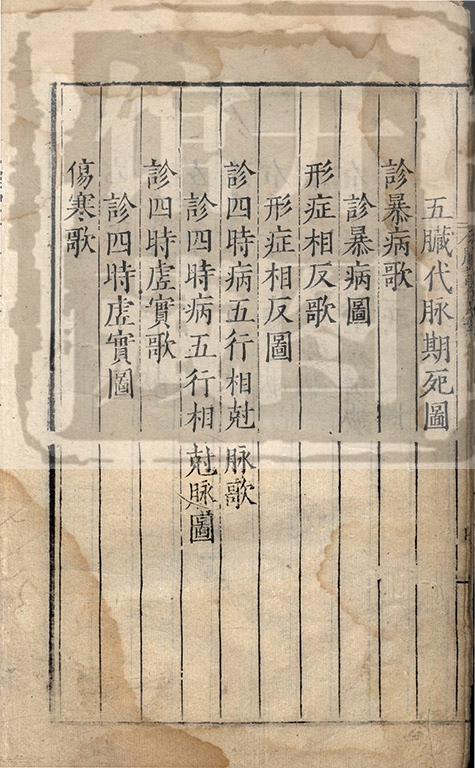 五臟代脉期死圖
診暴病歌
診暴病圖
形症相反歌
形症相反圖
診四時病五行相尅脉歌
診四時病五行相尅脉圖
診四時虛實歌
診四時虛實圖
傷寒歌